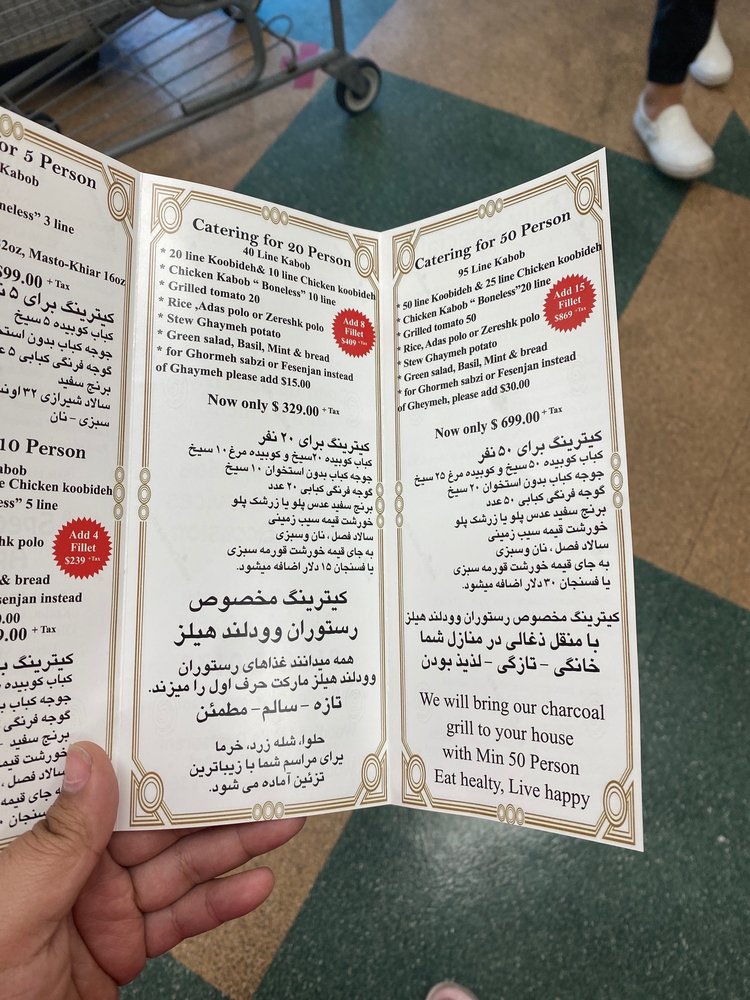 or 5 Person
Kabob
neless” 3 line
2oz, Masto-Khiar 16oz
$99.00 + Tax
کیترینگ برای ۵
کباب کوبیده ۵ سیخ
جوجه کباب بدون
گوجه فرنگی کبابی ۵
برنج سفید
سالاد شیرازی ۳۲
سبزی - نان
10 Person
abob
e Chicken koobideh
ess” 5 line
hk polo
Add 4
Fillet
$239 +Tax
& bread
esenjan instead
9.00
9.00 + Tax
کیترینگ
کباب کوبیده
جوجه کباب
گوجه فرنگی
برنج سفید
خورشت قیمه
سالاد فصل ،
به جای قیمه
یا فسنجان
Catering for 20 Person
40 Line Kabob
* 20 line Koobideh& 10 line Chicken koobideh
* Chicken Kabob “ Boneless” 10 line
* Grilled tomato 20
* Rice ,Adas polo or Zereshk polo
* Stew Ghaymeh potato
* Green salad, Basil, Mint & bread
* for Ghormeh sabzi or Fesenjan instead
of Ghaymeh please add $15.00
Add 8
Fillet
$409 +Tax
Now only $ 329.00 + Tax
کیترینگ برای ۲۰ نفر
کباب کوبیده ۲۰سیخ و کوبیده مرغ ۱۰ سیخ
جوجه کباب بدون استخوان ۱۰ سیخ
گوجه فرنگی کبابی ۲۰ عدد
برنج سفید عدس پلو یا زرشک پلو
خورشت قیمه سیب زمینی
سالاد فصل ، نان وسبزی
به جای قیمه خورشت قورمه سبزی
یا فسنجان ۱۵ دلار اضافه میشود.
کیترینگ مخصوص
رستوران وودلند هیلز
همه میدانند غذاهای رستوران
وودلند هیلز مارکت حرف اول را میزند.
تازه - سالم- مطمئن
حلوا، شله زرد، خرما
برای مراسم شما با زیباترین
تزئین آماده می شود.
Catering for 50 Person
95 Line Kabob
* 50 line Koobideh & 25 line Chicken koobideh
* Chicken Kabob “ Boneless”20 line
* Grilled tomato 50
* Rice, Adas polo or Zereshk polo
* Stew Ghaymeh potato
* Green salad, Basil, Mint & bread
* for Ghormeh sabzi or Fesenjan instead
of Gheymeh, please add $30.00
Add 15
Fillet
$869 +Tax
Now only $ 699.00+ Tax
کیترینگ برای ۵۰ نفر
کباب کوبیده ۵۰ سیخ و کوبیده مرغ ۲۵ سیخ
جوجه کباب بدون استخوان ۲۰ سیخ
گوجه فرنگی کبابی ۵۰ عدد
برنج سفید عدس پلو یا زرشک پلو
خورشت قیمه سیب زمینی
سالاد فصل ، نان وسبزی
به جای قیمه خورشت قورمه سبزی
یا فسنجان ۳۰ دلار اضافه میشود.
کیترینگ مخصوص رستوران وودلند هیلز
با منقل ذغالی در منازل شما
خانگی - تازگی - لذیذ بودن
We will bring our charcoal
grill to your house
with Min 50 Person
Eat healty, Live happy